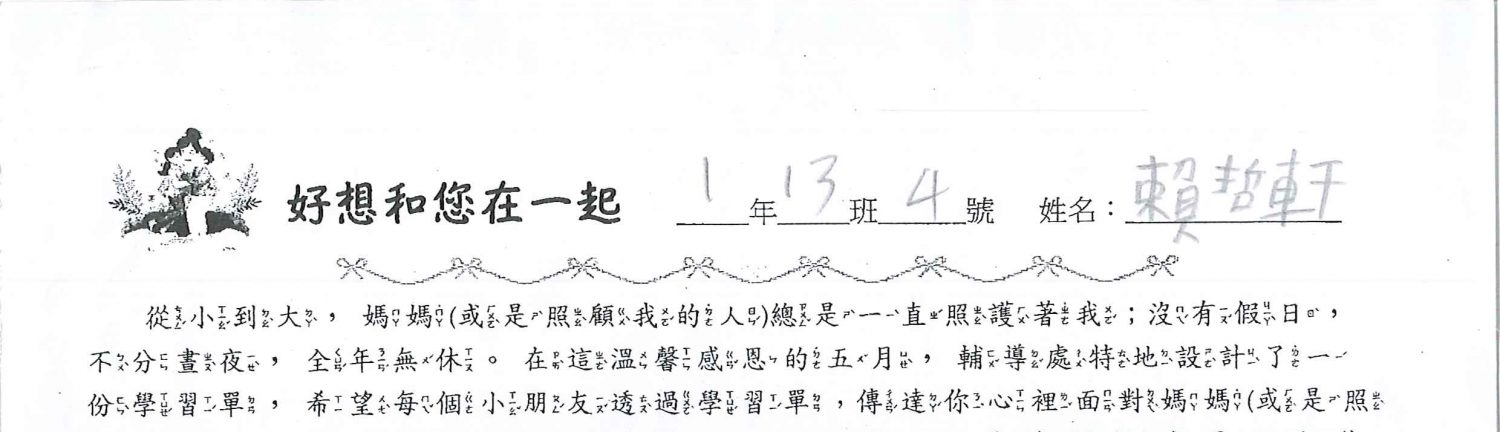 好想和您在一起 1年13班4號 姓名：賴哲軒
從小到大，媽媽(或是照顧我的人)總是一直照護著我；沒有假日，
不分晝夜，全年無休。在這溫馨感恩的五月，輔導處特地設計了一
份學習單，希望每個小朋友透過學習單，傳達你心裡面對媽媽(或是照